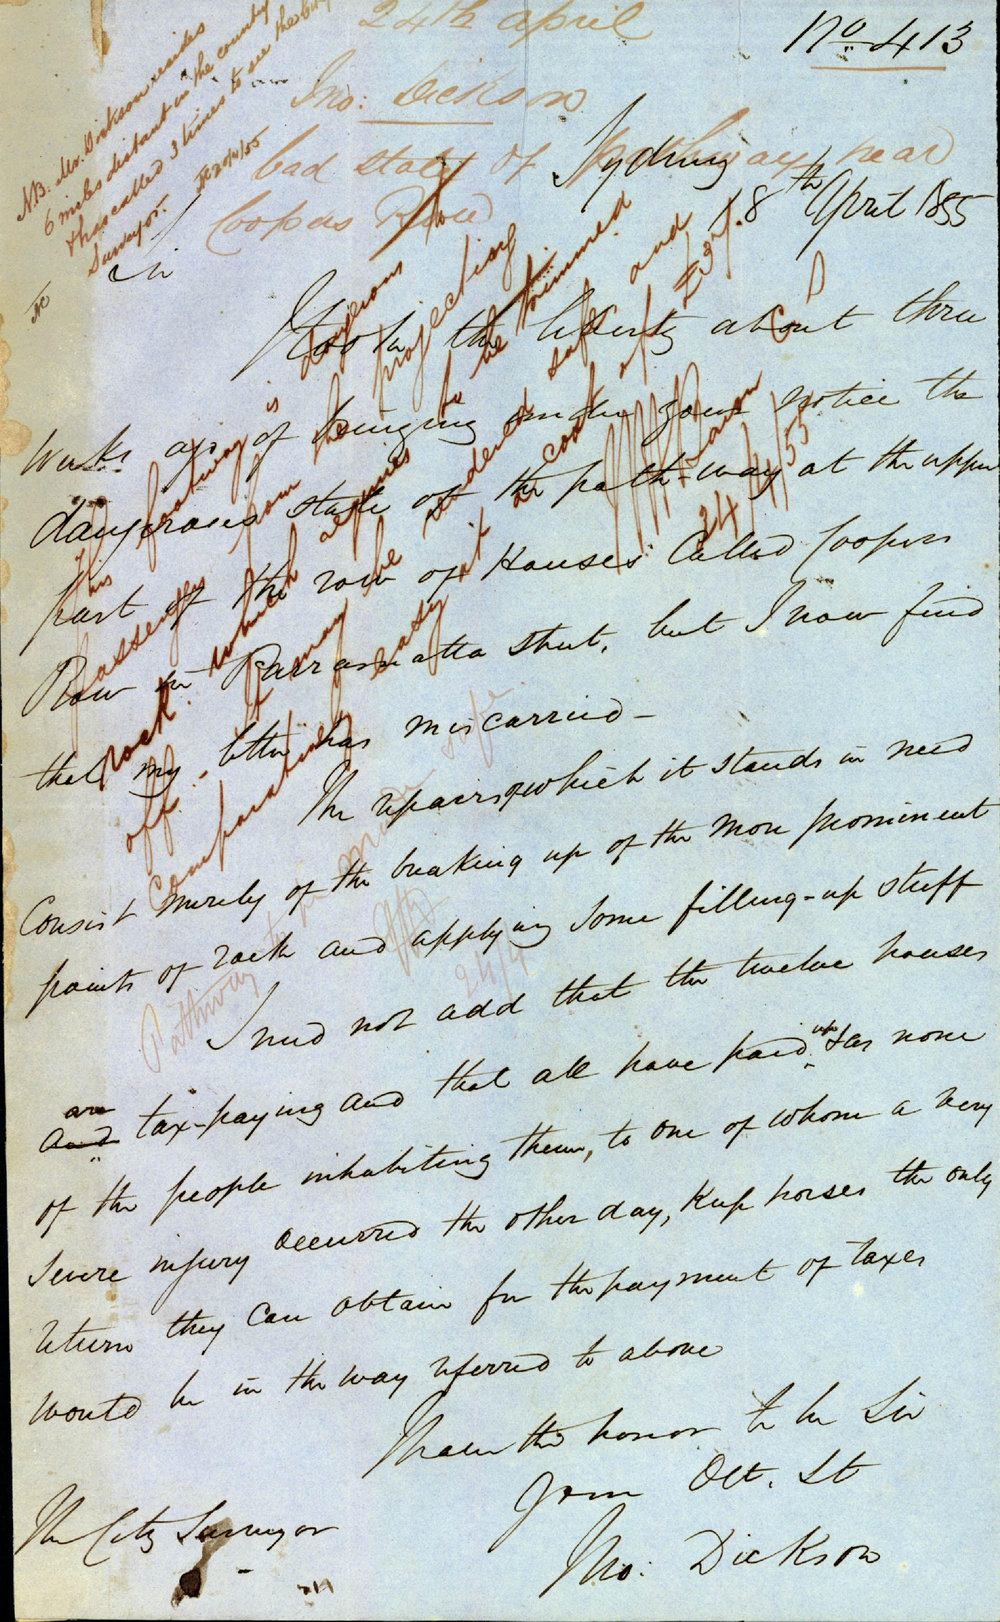 24th april
No 413
Jno: Dickson
bad state of Pathway near
Coopers Row
N.B. Mr. Dickson resides
6 miles distant in the country
& has called 3 times to see the City
Surveyor.
20/4/55
Sydney
18th April 1855
Sir
I took the liberty about three
weeks ago of bringing under your notice the
dangerous state of the path-way at the upper
part of the row of Houses Called Coopers
Row in Parramatta Street, but I now find
that my letter has miscarried -
The repairs of which it stands in need
Consist merely of the breaking up of the more prominent
points of rock and applying some filling-up stuff
I need not add that the twelve houses
and are tax-paying and that all have paid up & as none
of the people inhabiting them, to one of whom a very
severe injury occurred the other day, Keep horses the only
return they can obtain for the payment of taxes
would be in the way referred to above
I have the honor to be Sir
Your Obt. St
Jno: Dickson
The City Surveyor
This footway is dangerous
passengers from the projecting
rock which requires to be trimmed
off. it may be rendered safe and
comparatively easy at a cost of £37.
24/4/55
Pathway
24/4